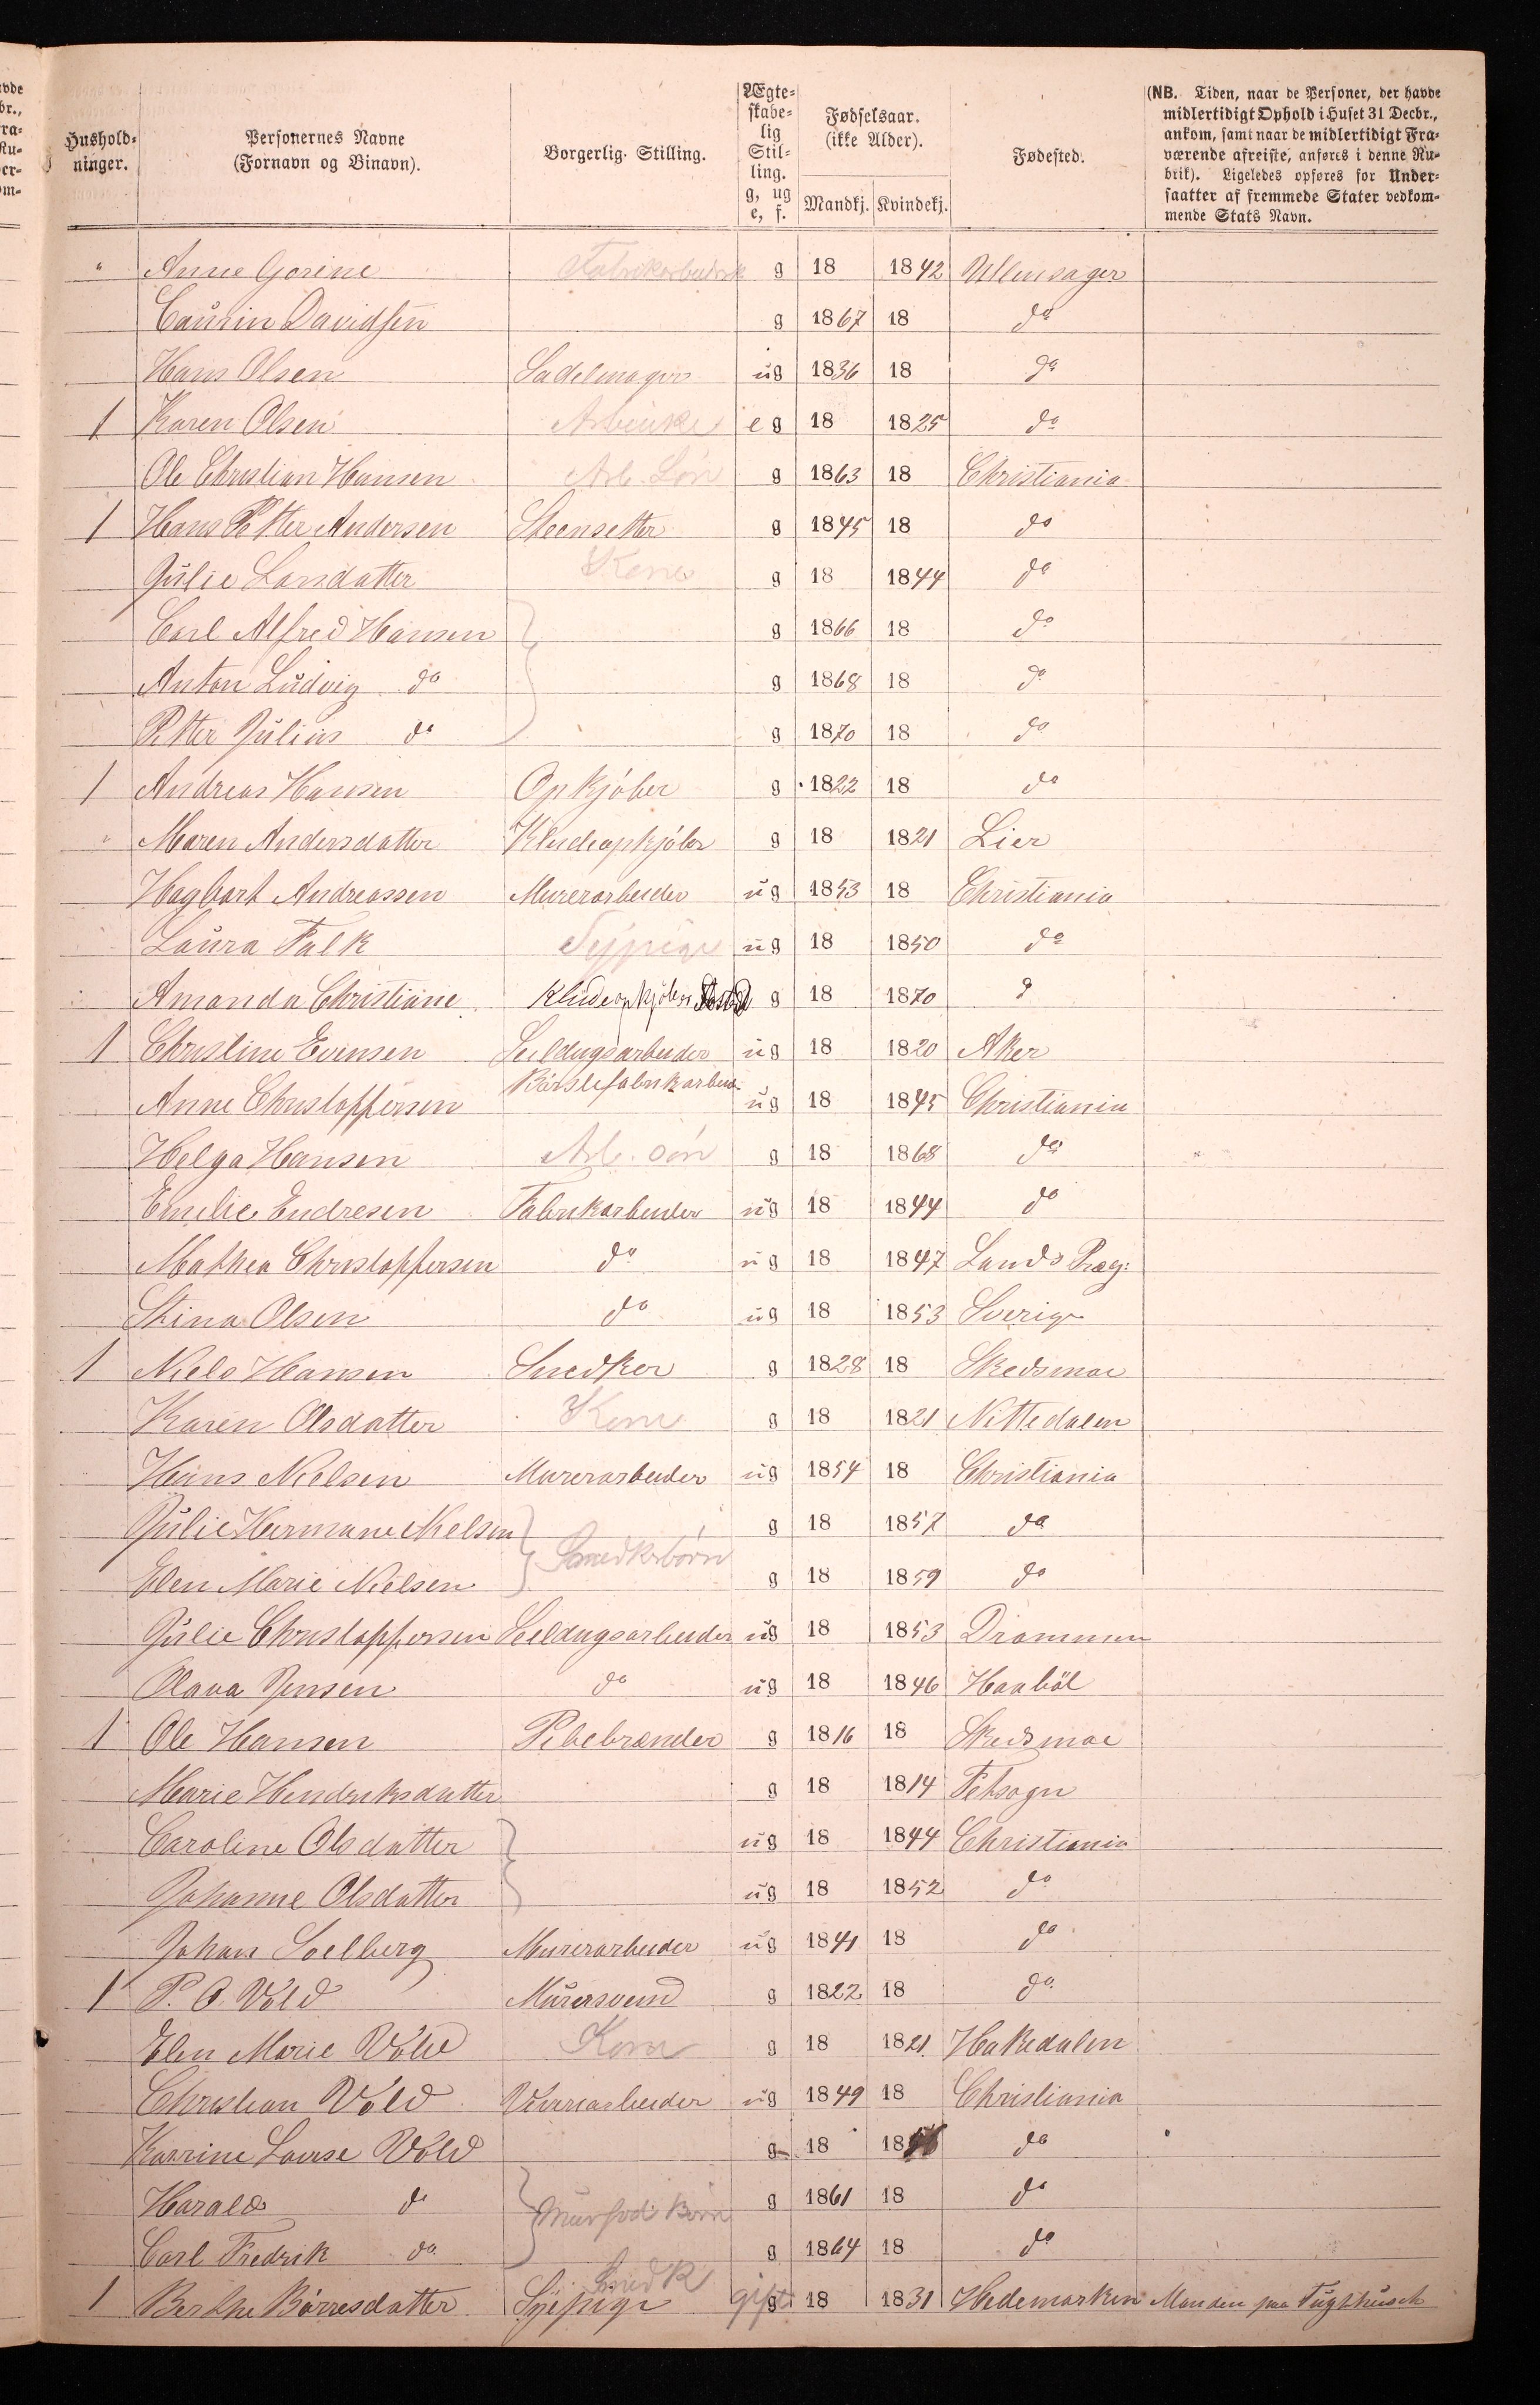 Hushold-
ninger.
Personernes Navne
(Fornavn og Binavn).
Borgerlig Stilling.
Ægte-
skabe-
lig
Stil-
ling.
g, ug
e, f.
Fødselsaar.
(ikke Alder).
Mandkj. Kvindekj.
Fødested.
(NB. Tiden, naar de Personer, der havde
midlertidigt Ophold i Huset 31 Decbr.,
ankom, samt naar de midlertidigt Fra-
værende afreiste, anføres i denne Ru-
brik). Ligeledes opføres for Under-
saatter af fremmede Stater vedkom-
mende Stats Navn.
" Anne Gorine Fabrikarbeidsk g 18 1842 Ullensager
Laurin Davidsen g 1867 18 do
Hans Olsen Sadelmager ug 1836 18 do
1 Karen Olsen Arbenke e g 18 1825 do
Ole Christian Hansen Arb. Søn g 1863 18 Christiania
1 Hans Petter Andersen Steensetter g 1845 18 do
Julie Larsdatter Kone g 18 1844 do
Carl Alfred Hansen g 1866 18 do
Anton Ludvig do g 1868 18 do
Petter Julius do g 1870 18 do
1 Andreas Hansen Opkjøber g 1822 18 do
" Maren Andersdatter Kludeopkjøber g 18 1821 Lier
Hagbart Andreassen Murerarbeider ug 1853 18 Christiania
Laura Falk Sypige ug 18 1850 do
Amanda Christiane Kludeopkjøbers g 18 1870 d
1 Christine Evensen Seildugsarbeider ug 18 1820 Aker
Anne Christoffersen Børstefabrikarbeid ug 18 1845 Christiania
Helga Hansen Arb. søn g 18 1868 do
Emilie Endresen Fabrikarbeider ug 18 1844 do
Mathea Christoffersen do ug 18 1847 Lands Præg:
Stina Olsen do ug 18 1853 Sverige
1 Niels Hansen Snedker g 1828 18 Skedsmoe
Karen Olsdatter Kone g 18 1821 Nittedalen
Hans Nielsen Murerarbeider ug 1854 18 Christiania
Julie Hermane Nielsen g 18 1857 do
Snedkerbørn
Elen Marie Nielsen g 18 1859 do
Julie Christoffersen Seildugsarbeider ug 18 1853 Drammen
Olava Jensen do ug 18 1846 Haabøl
1 Ole Hansen Pibebrænder g 1816 18 Skedsmoe
Marie Hendriksdatter g 18 1814 Fetsogn
Caroline Olsdatter ug 18 1844 Christiania
Johanne Olsdatter ug 18 1852 do
Johan Soelberg Murerarbeider ug 1841 18 do
1 P. O. Vold Murersvend g 1822 18 do
Elen Marie Vold Kone g 18 1821 Hakedalen
Christian Vold Værnarbeider ug 1849 18 Christiania
Karrine Lovise Vold g 18 18 do
Harald do g 1861 18 do
Mursvd Børn
Carl Fredrik do g 1864 18 do
1 Berthe Børresdatter Syepige gift g 18 1831 Hedemarken Manden paa Tugthuset